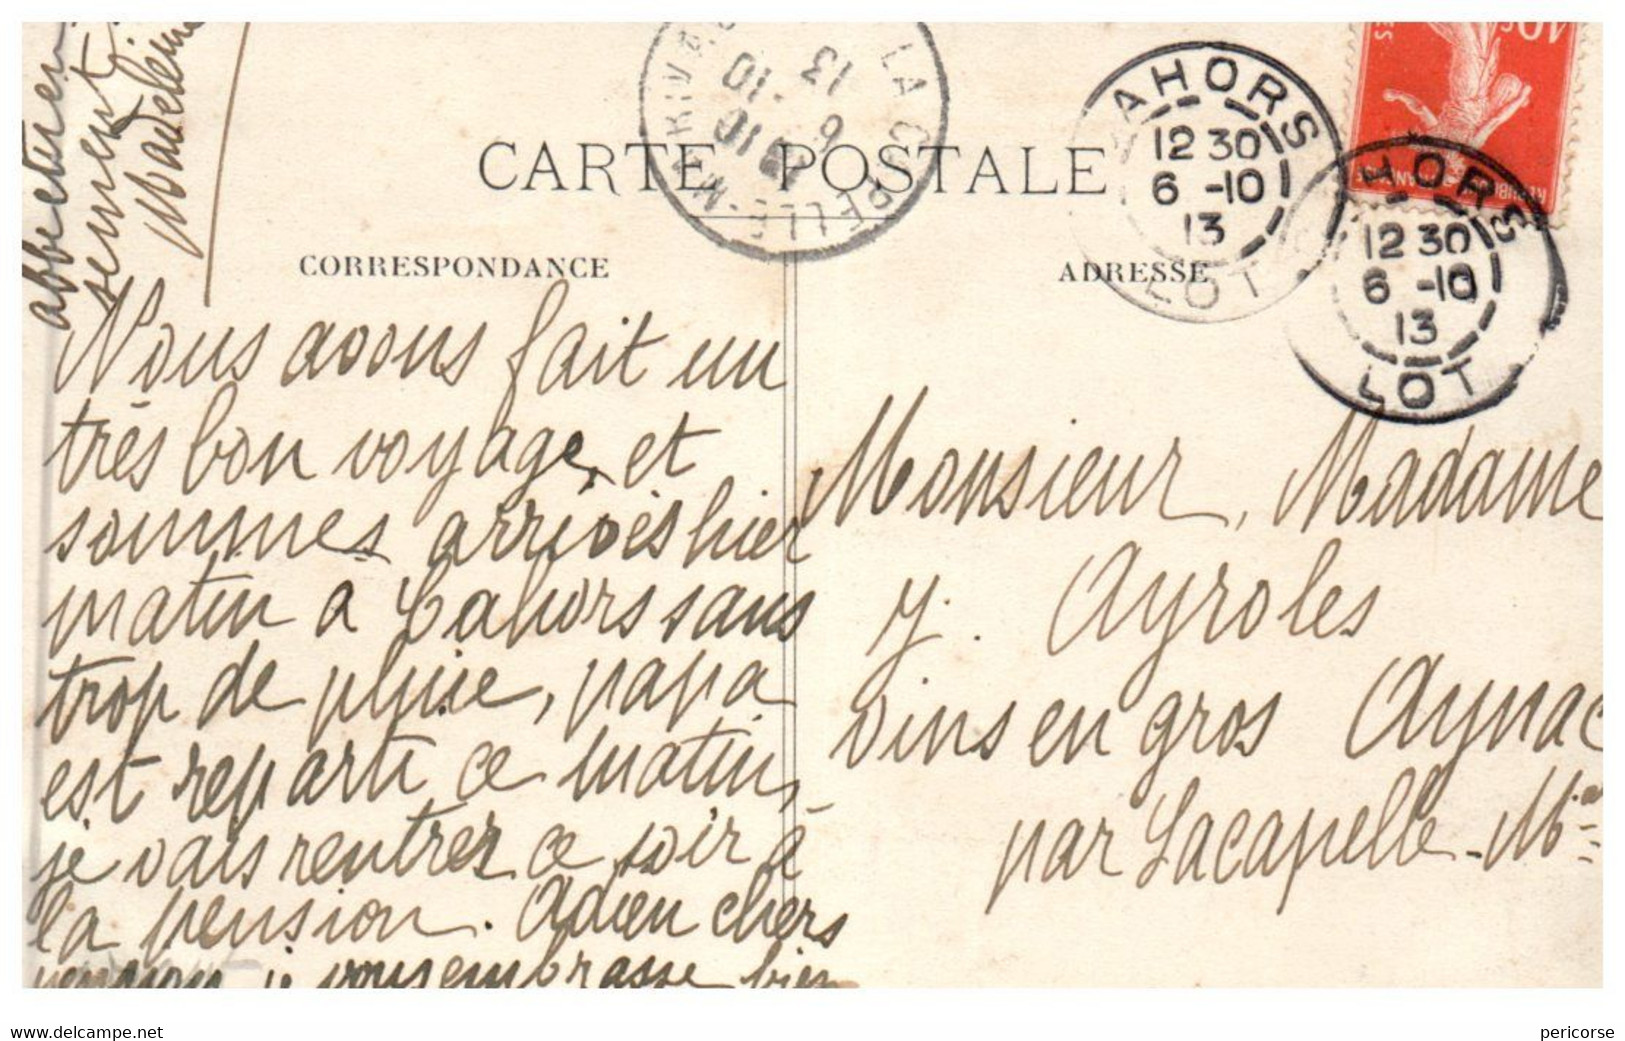 CARTE POSTALE
CORRESPONDANCE
ADRESSE
LA CAPELLE-MARIVAL
6 - 10
13
CAHORS
12 30
6 - 10
13
LOT
CAHORS
12 30
6 - 10
13
LOT
10c
Nous avons fait un
très bon voyage, et
sommes arrivés hier
matin a Cahors sans
trop de pluie, papa
est reparti ce matin,
je vais rentrer ce soir à
la pension. Adieu chers
je vous embrasse bien
affectueu
sement
Madeleine
Monsieur, Madame
Ayroles
vins en gros Aynac
par Lacapelle-M
www.delcampe.net
pericorse